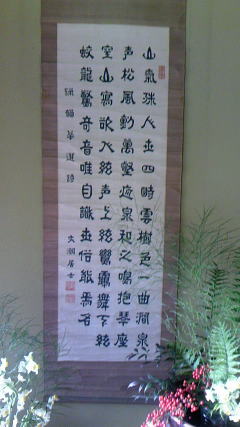 山氣殊人世四時雲樹色一曲澗泉
声松風動萬壑夜泉和之鳴抱琴座
空山寫欲入絃声上絃鸞鳳舞下絃
蛟龍驚奇音唯自識世俗能焉名
華選詩
文潮居士